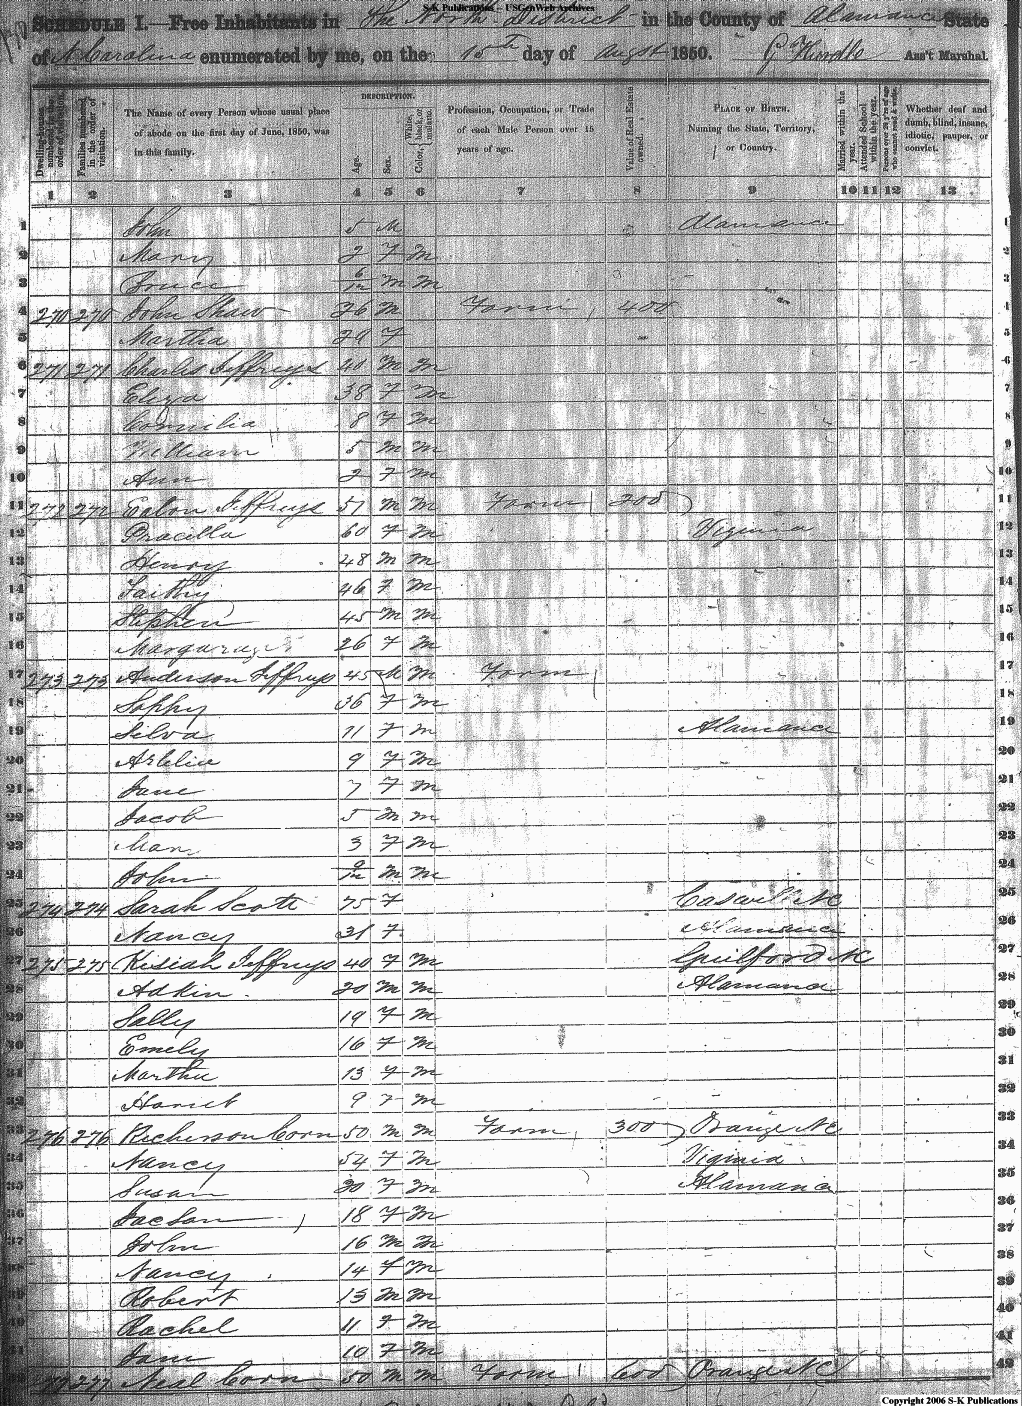 S-K Publications – USGenWeb Archives
SCHEDULE I.—Free Inhabitants in The North District in the County of Alamance State
of N Carolina enumerated by me, on the 15th day of Augst 1850. Ass't Marshal.
Dwelling-houses numbered in the order of visitation.
Families numbered in the order of visitation.
The Name of every Person whose usual place of abode on the first day of June, 1850, was in this family.
DESCRIPTION.
Age.
Sex.
Color, White, black, or mulatto.
Profession, Occupation, or Trade of each Male Person over 15 years of age.
Value of Real Estate owned.
PLACE OF BIRTH. Naming the State, Territory, or Country.
Married within the year.
Attended School within the year.
Persons over 20 y'rs of age who cannot read & write.
Whether deaf and dumb, blind, insane, idiotic, pauper, or convict.
1 2 3 4 5 6 7 8 9 10 11 12 13
1 John 5 M Alamance 1
2 Mary 2 F M 2
3 6/12 M M 3
4 270 270 John Shaw 26 M Farm 400 4
5 Martha 29 F 5
6 271 271 Charles Jeffreys 40 M M 6
7 Eliza 38 F M 7
8 Cornelia 8 F M 8
9 William 5 M M 9
10 Ann 2 F M 10
11 272 272 Eaton Jeffreys 51 M M Farm 200 11
12 Pracilla 60 F M Viginia 12
13 Henry 48 M M 13
14 Faithy 46 F M 14
15 Stephen 45 M M 15
16 26 F M 16
17 273 273 Anderson Jeffreys 45 M M Farm 17
18 Sophy 36 F M 18
19 Silva 11 F M Alamance 19
20 9 F M 20
21 Jane 7 F M 21
22 Jacob 5 M M 22
23 3 F M 23
24 John 9/12 M M 24
25 274 274 Sarah Scott 75 F Caswell NC 25
26 Nancy 31 F Alamance 26
27 275 275 Kisiah Jeffreys 40 F M Guilford NC 27
28 Adkin 20 M M Alamance 28
29 Sally 19 F M 29
30 Emely 16 F M 30
31 Martha 13 F M 31
32 Hariet 9 F M 32
33 276 276 Richerson Corn 50 M M Farm 300 Orange NC 33
34 Nancy 54 F M Viginia 34
35 Susan 20 F M Alamance 35
36 Jackson 18 F M 36
37 John 16 M M 37
38 Nancy 14 F M 38
39 Robert 13 M M 39
40 Rachel 11 F M 40
41 Jane 10 F M 41
42 277 277 Neal Corn 50 M M Farm 600 Orange NC 42
Copyright 2006 S-K Publications